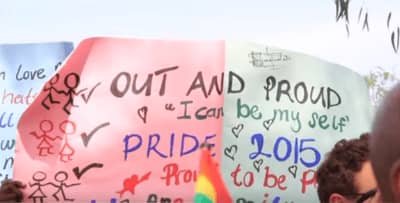 n love
hat
OUT AND PROUD
"I can be my self
PRIDE 2015
Pro to be P